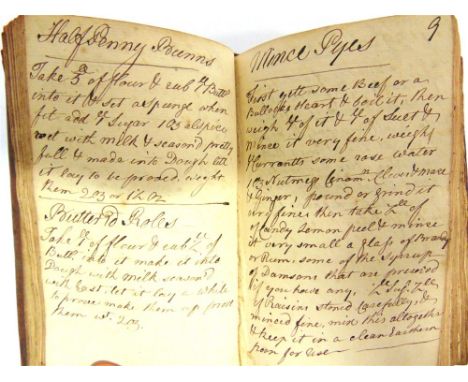 Half Penny Bunns
Take of flour & rub ye Butt
into it & set a spunge when
fit add ye Sugar 1 oz alspice
wet with milk & season pretty
full & made into Dough let
it lay to be proved, weight
them 2 oz or 1½ oz
Butter'd Rolls
Take of flour & rub of
Butt into it make it into
Dough with milk season'd
with East. let it lay a while
to prove make them up proof
them wt 2 oz.
9
Mince Pyes
First gett some Beef or a
Bullocks Heart & boil it, then
weigh of it & of Suet &
Mince it very fine, weigh
Currants some rose water
1 oz Nutmegs Cloves & Mace
& Ginger, pound or grind it
very fine then take
of Candy Lemon peel & mince
it very small a glass of Brandy
or Rum, some of the Syrup
of Damsons that are preserved
if you have any,
of Raisins stoned Carefully, &
minced fine, mix this altogether
& keep it in a clean Earthern
for Use